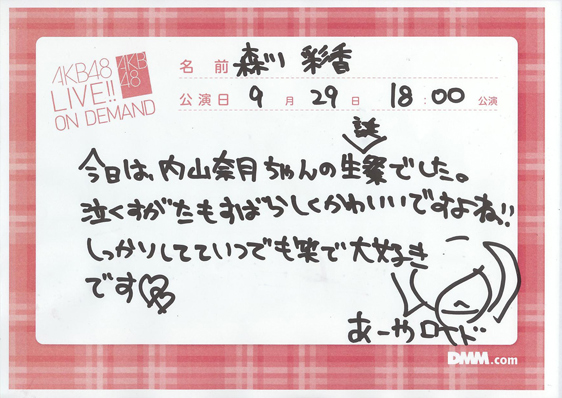 AKB48
LIVE!!
ON DEMAND
AKB
48
名 前 森川 彩香
公演日 9 月 29 日 18:00 公演
誕
今日は、内山奈月ちゃんの生祭でした。
泣くすがたもすばらしくかわいいですよね!!
しっかりしてていつでも笑で大好き
です♡
あーやロイド
DMM.com